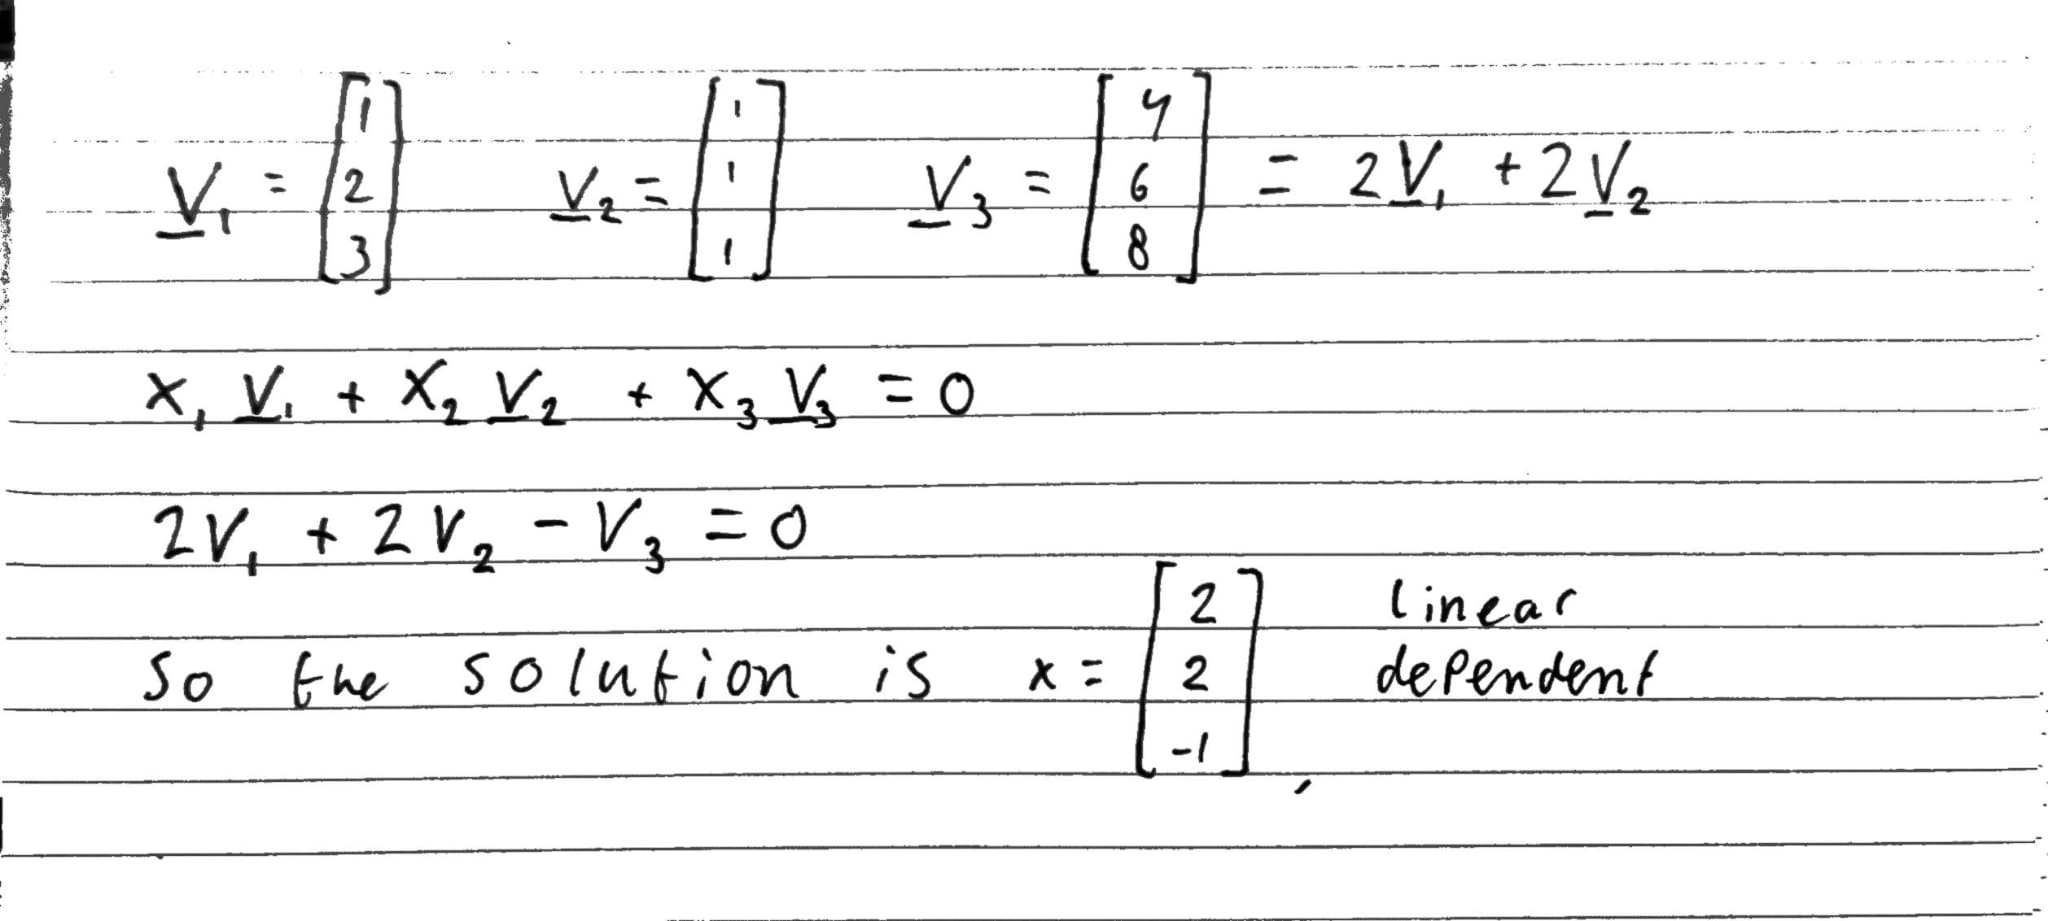 V₁ = [1 2 3] V₂ = [1 1 1] V₃ = [4 6 8] = 2V₁ + 2V₂
x₁ V₁ + x₂ V₂ + x₃ V₃ = 0
2V₁ + 2V₂ - V₃ = 0
so the solution is x = [2 2 -1], linear dependent